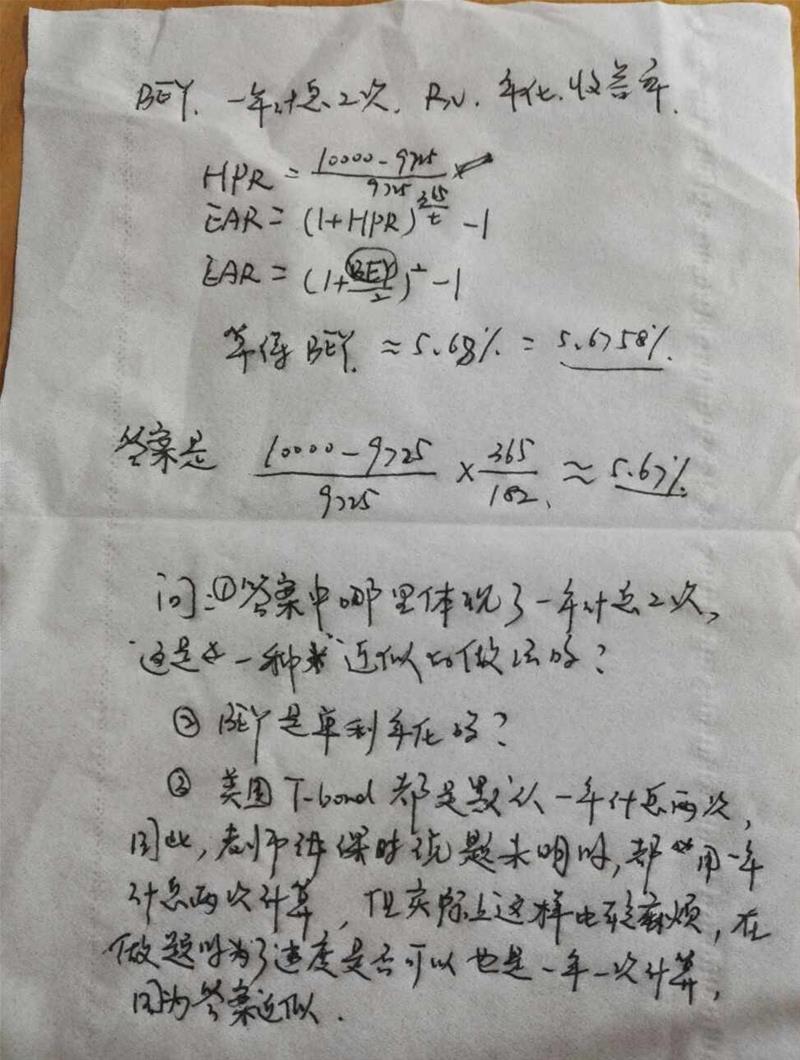 BEY. 一年计息2次, 年化收益率.
HPR = (10000 - 9725) / 9725 ×
EAR = (1+HPR)^(365/t) - 1
EAR = (1+BEY/2)² - 1
算得 BEY. ≈ 5.68% = 5.6758%.
答案是 (10000 - 9725) / 9725 × 365/182. ≈ 5.67%.
问:①答案中哪里体现了一年计息2次,
这是一种近似的做法吗?
② BEY是单利年化吗?
③ 美国 T-bond 都是默认一年计息两次,
因此, 老师讲课时说题未明时, 都用一年
计息两次计算, 但实际上这样比较麻烦, 在
做题时为了速度是否可以也是一年一次计算,
因为答案近似.